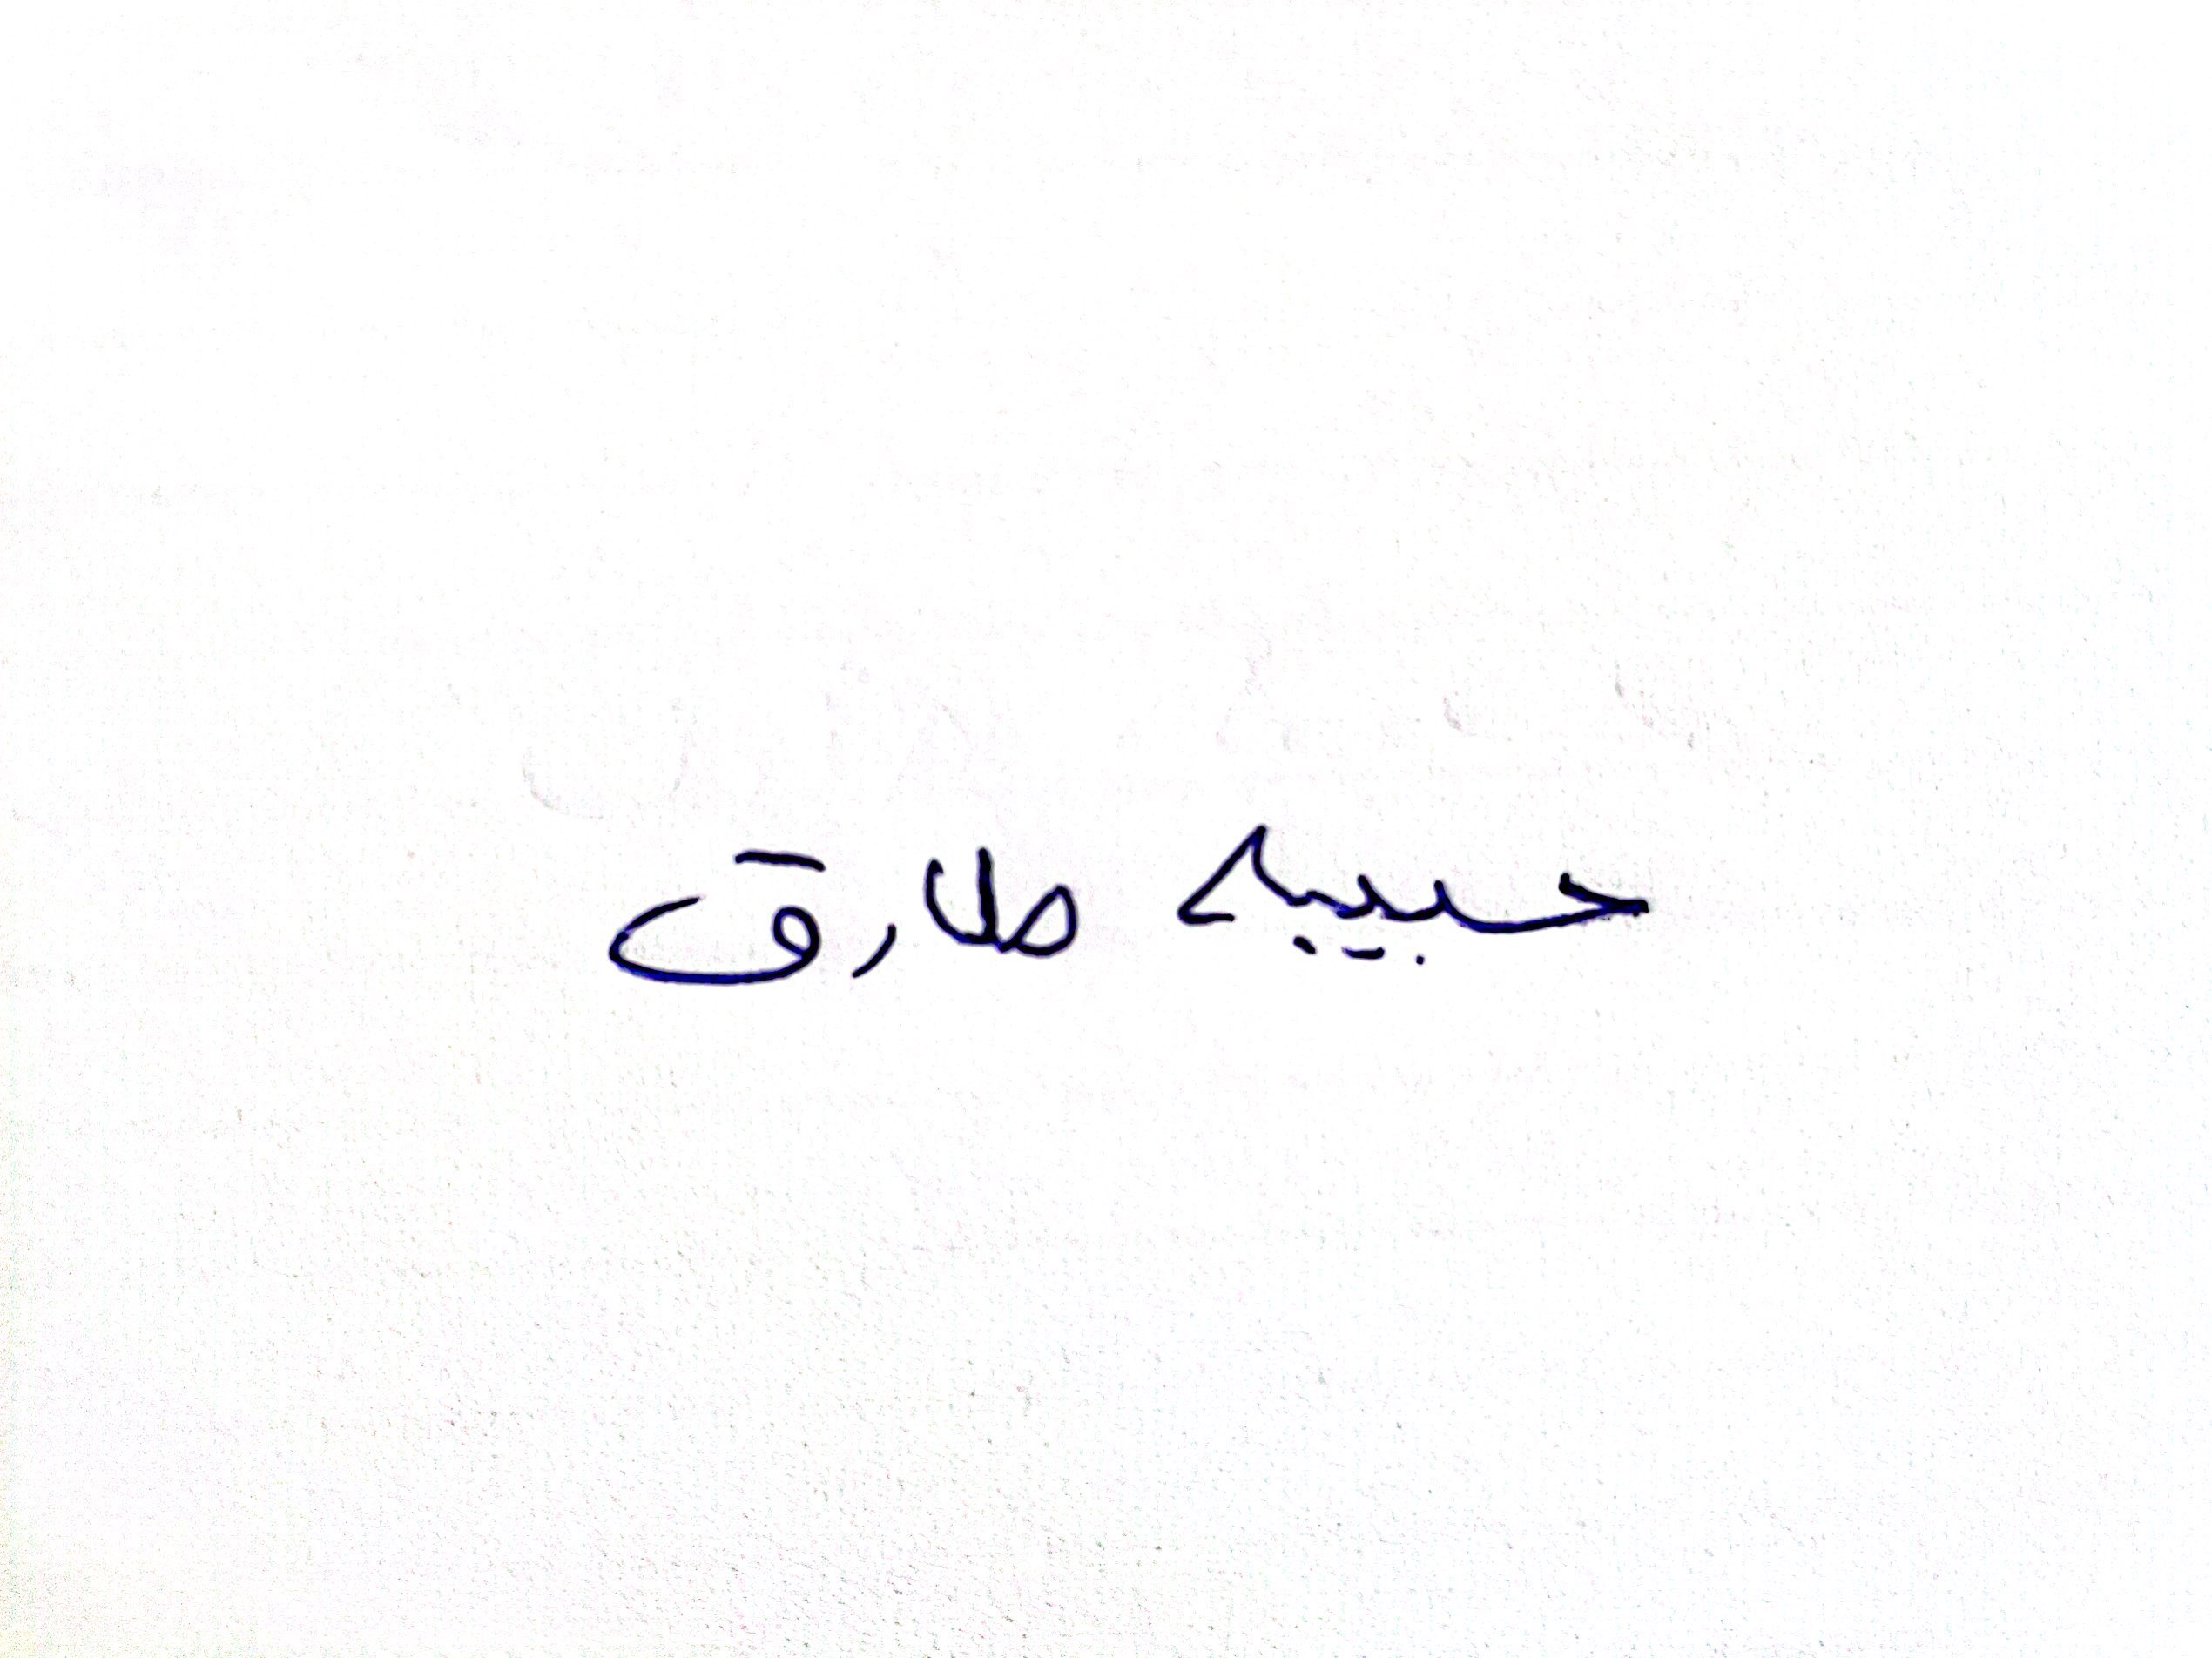 حبيبه طارق